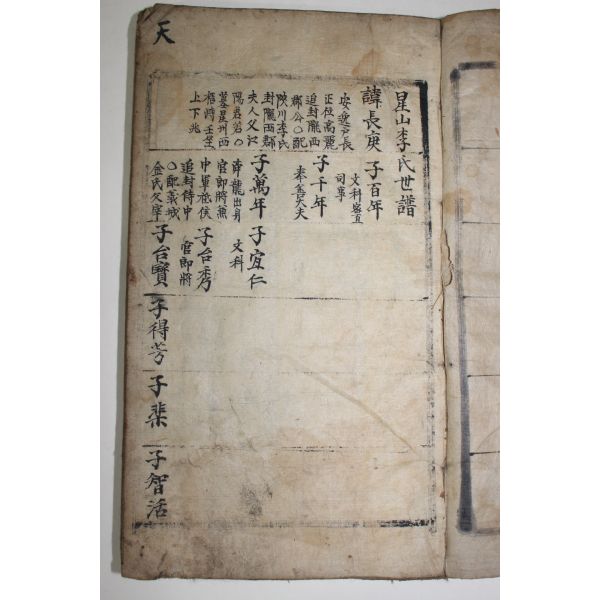 天
星山李氏世譜
諱長庚
安逸戶長
正位高麗
追封隴西
郡公○配
陜川李氏
封隴西郡
夫人父江
陽君若○
墓星州西
上下兆
子百年
文科密直
司宰
子千年
奉善大夫
子萬年
奉龍出身
官郎將兼
中軍
追封侍中
○配義城
金氏父宰
子宜仁
文科
子台秀
官郎將
子台寶
子得芳
子棐
子智活